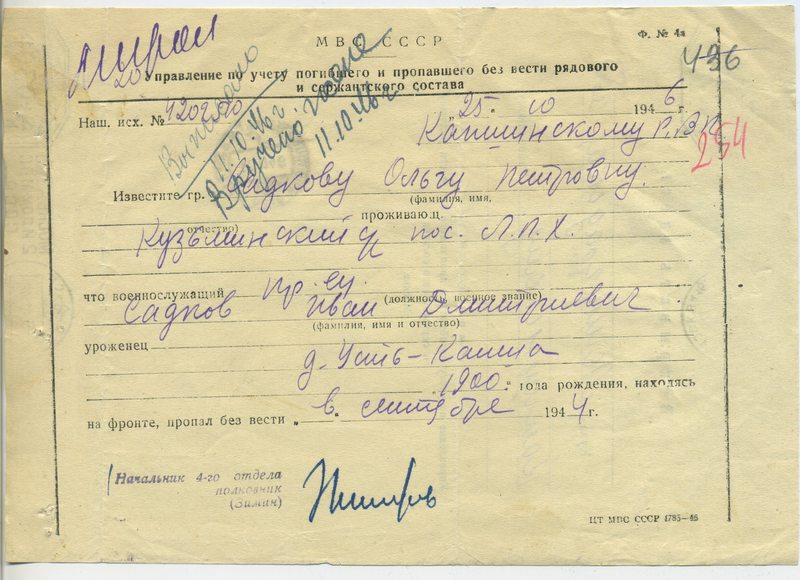 МВС СССР
Ф. № 4а
436
Управление по учету погибшего и пропавшего без вести рядового
и сержантского состава
Наш. исх. №
"25" 10 1946
Вручено жене
11.10.46 г.
11.10.46 г.
254
Известите гр. Садкову Ольгу Петровну
(фамилия, имя,
отчество) проживающ.
пос. Л.П.Х.
что военнослужащий
(должность, военное звание)
Садков Иван Дмитриевич
(фамилия, имя и отчество)
уроженец
1900 года рождения, находясь
на фронте, пропал без вести „в сентябре 1944 г.
Начальник 4-го отдела
полковник
(Зимин)
ЦТ МВС СССР 1785—46